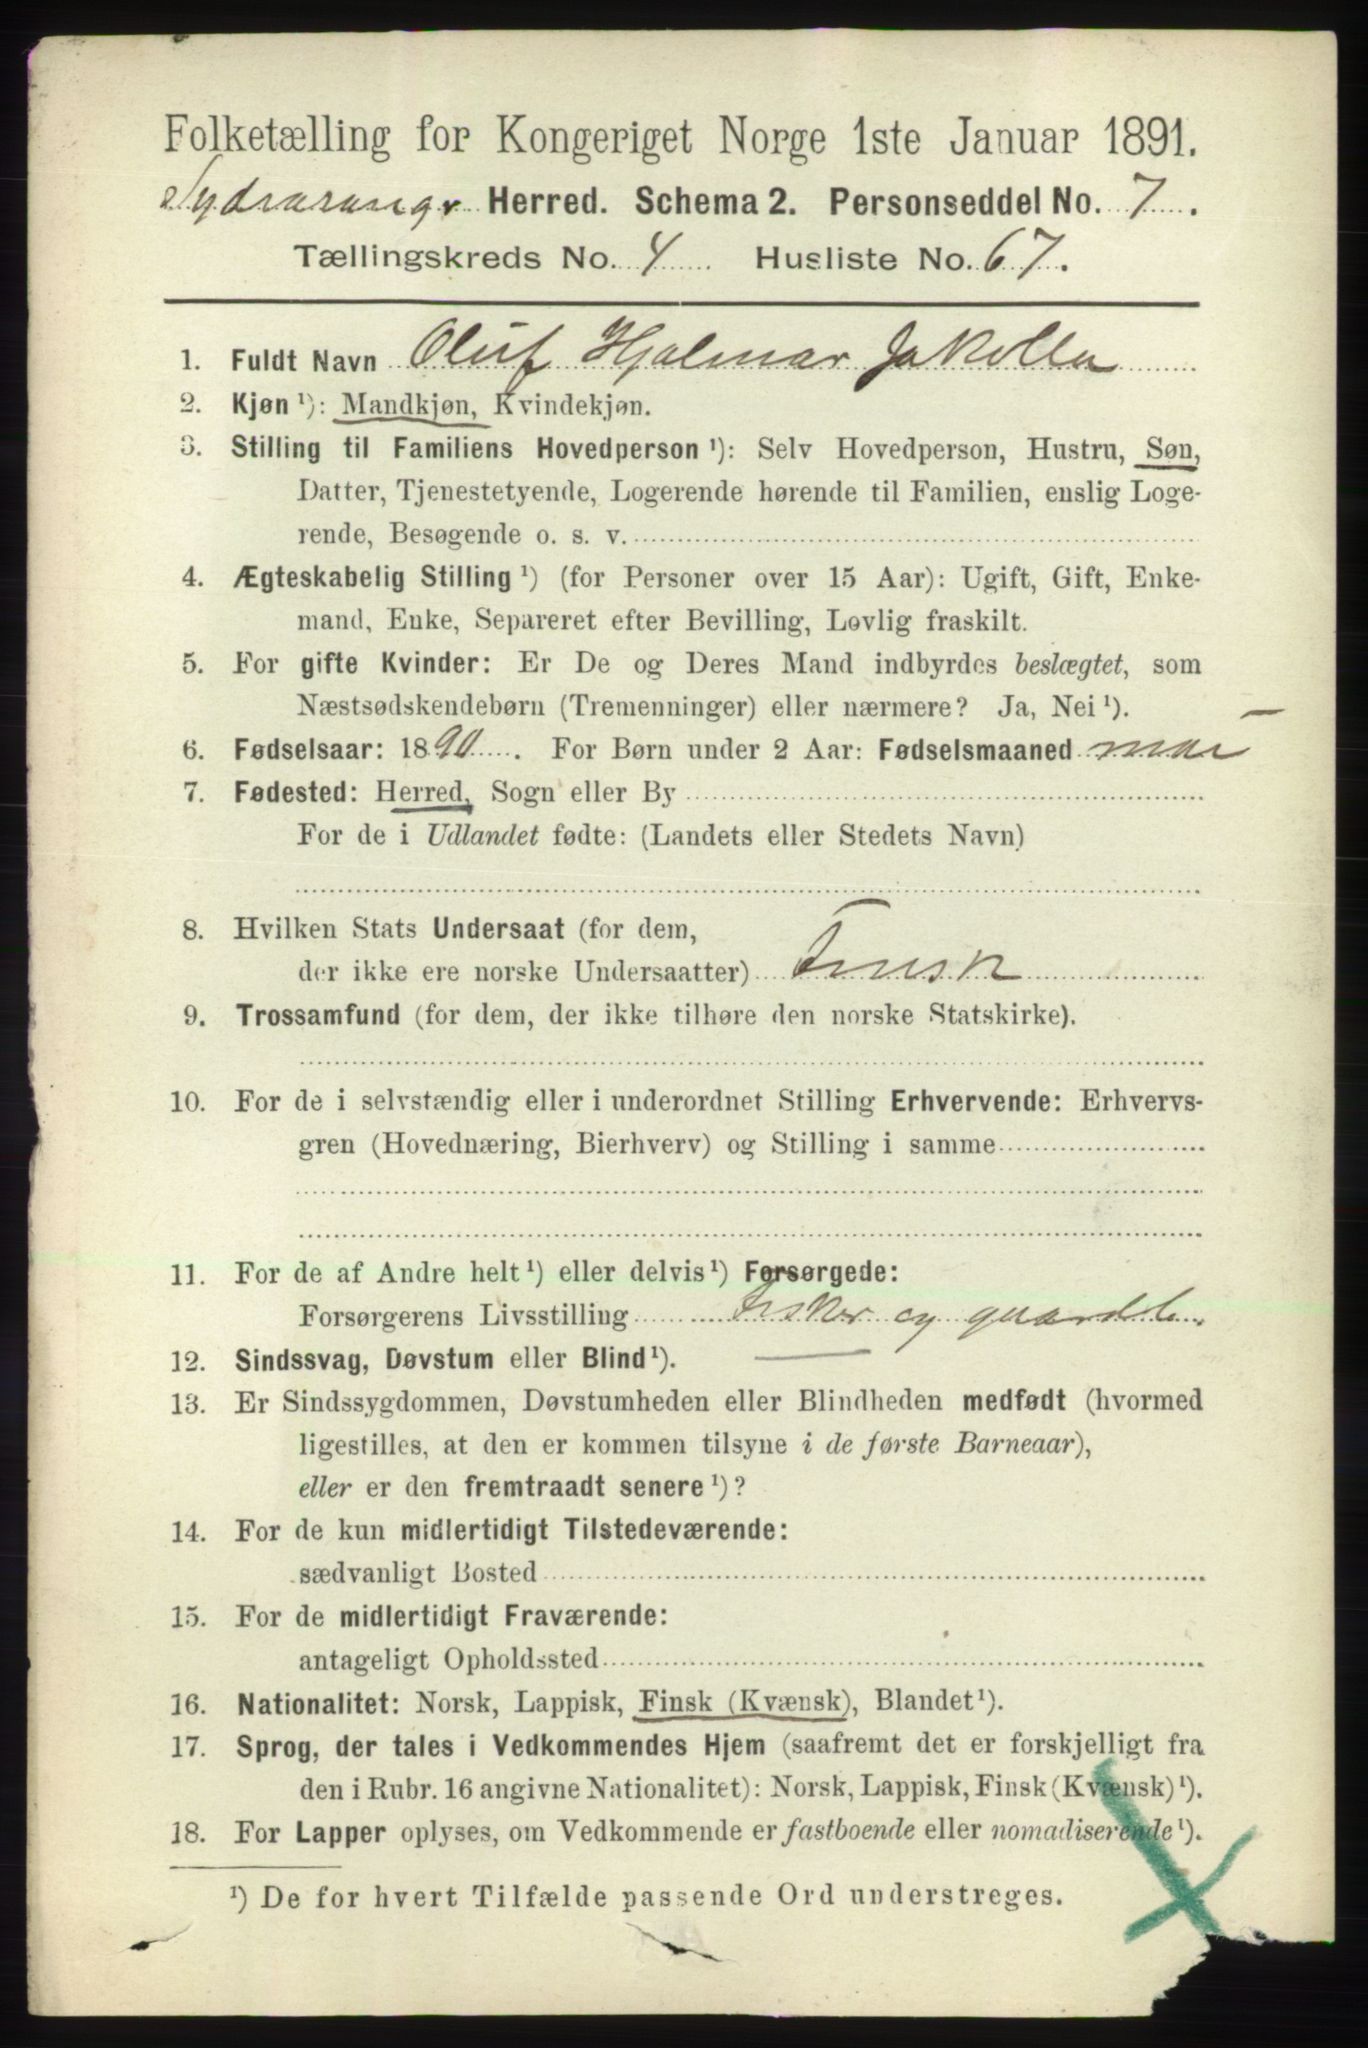 Folketælling for Kongeriget Norge 1ste Januar 1891.
Sydvaranger Herred. Schema 2. Personseddel No. 7.
Tællingskreds No. 4 Husliste No. 67.
1. Fuldt Navn Oluf Hjalmar Jakolla
2. Kjøn ¹): Mandkjøn, Kvindekjøn.
3. Stilling til Familiens Hovedperson ¹): Selv Hovedperson, Hustru, Søn,
Datter, Tjenestetyende, Logerende hørende til Familien, enslig Loge-
rende, Besøgende o. s. v.
4. Ægteskabelig Stilling ¹) (for Personer over 15 Aar): Ugift, Gift, Enke-
mand, Enke, Separeret efter Bevilling, Løvlig fraskilt.
5. For gifte Kvinder: Er De og Deres Mand indbyrdes beslægtet, som
Næstsødskendebørn (Tremenninger) eller nærmere? Ja, Nei ¹).
6. Fødselsaar: 1890. For Børn under 2 Aar: Fødselsmaaned mai
7. Fødested: Herred, Sogn eller By
For de i Udlandet fødte: (Landets eller Stedets Navn)
8. Hvilken Stats Undersaat (for dem,
der ikke ere norske Undersaatter) Finsk
9. Trossamfund (for dem, der ikke tilhøre den norske Statskirke).
10. For de i selvstændig eller i underordnet Stilling Erhvervende: Erhvervs-
gren (Hovednæring, Bierhverv) og Stilling i samme
11. For de af Andre helt ¹) eller delvis ¹) Forsørgede:
Forsørgerens Livsstilling Fisker og
12. Sindssvag, Døvstum eller Blind ¹).
13. Er Sindssygdommen, Døvstumheden eller Blindheden medfødt (hvormed
ligestilles, at den er kommen tilsyne i de første Barneaar),
eller er den fremtraadt senere ¹)?
14. For de kun midlertidigt Tilstedeværende:
sædvanligt Bosted
15. For de midlertidigt Fraværende:
antageligt Opholdssted
16. Nationalitet: Norsk, Lappisk, Finsk (Kvænsk), Blandet ¹).
17. Sprog, der tales i Vedkommendes Hjem (saafremt det er forskjelligt fra
den i Rubr. 16 angivne Nationalitet): Norsk, Lappisk, Finsk (Kvænsk) ¹).
18. For Lapper oplyses, om Vedkommende er fastboende eller nomadiserende ¹).
¹) De for hvert Tilfælde passende Ord understreges.